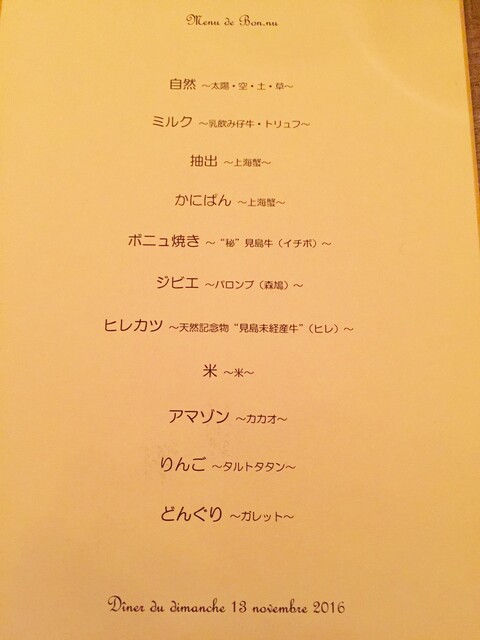 Menu de Bon.nu
自然 ～太陽・空・土・草～
ミルク ～乳飲み仔牛・トリュフ～
抽出 ～上海蟹～
かにぱん ～上海蟹～
ボニュ焼き ～“秘”見島牛（イチボ）～
ジビエ ～パロンブ（森鳩）～
ヒレカツ ～天然記念物“見島未経産牛”（ヒレ）～
米 ～米～
アマゾン ～カカオ～
りんご ～タルトタタン～
どんぐり ～ガレット～
Dîner du dimanche 13 novembre 2016